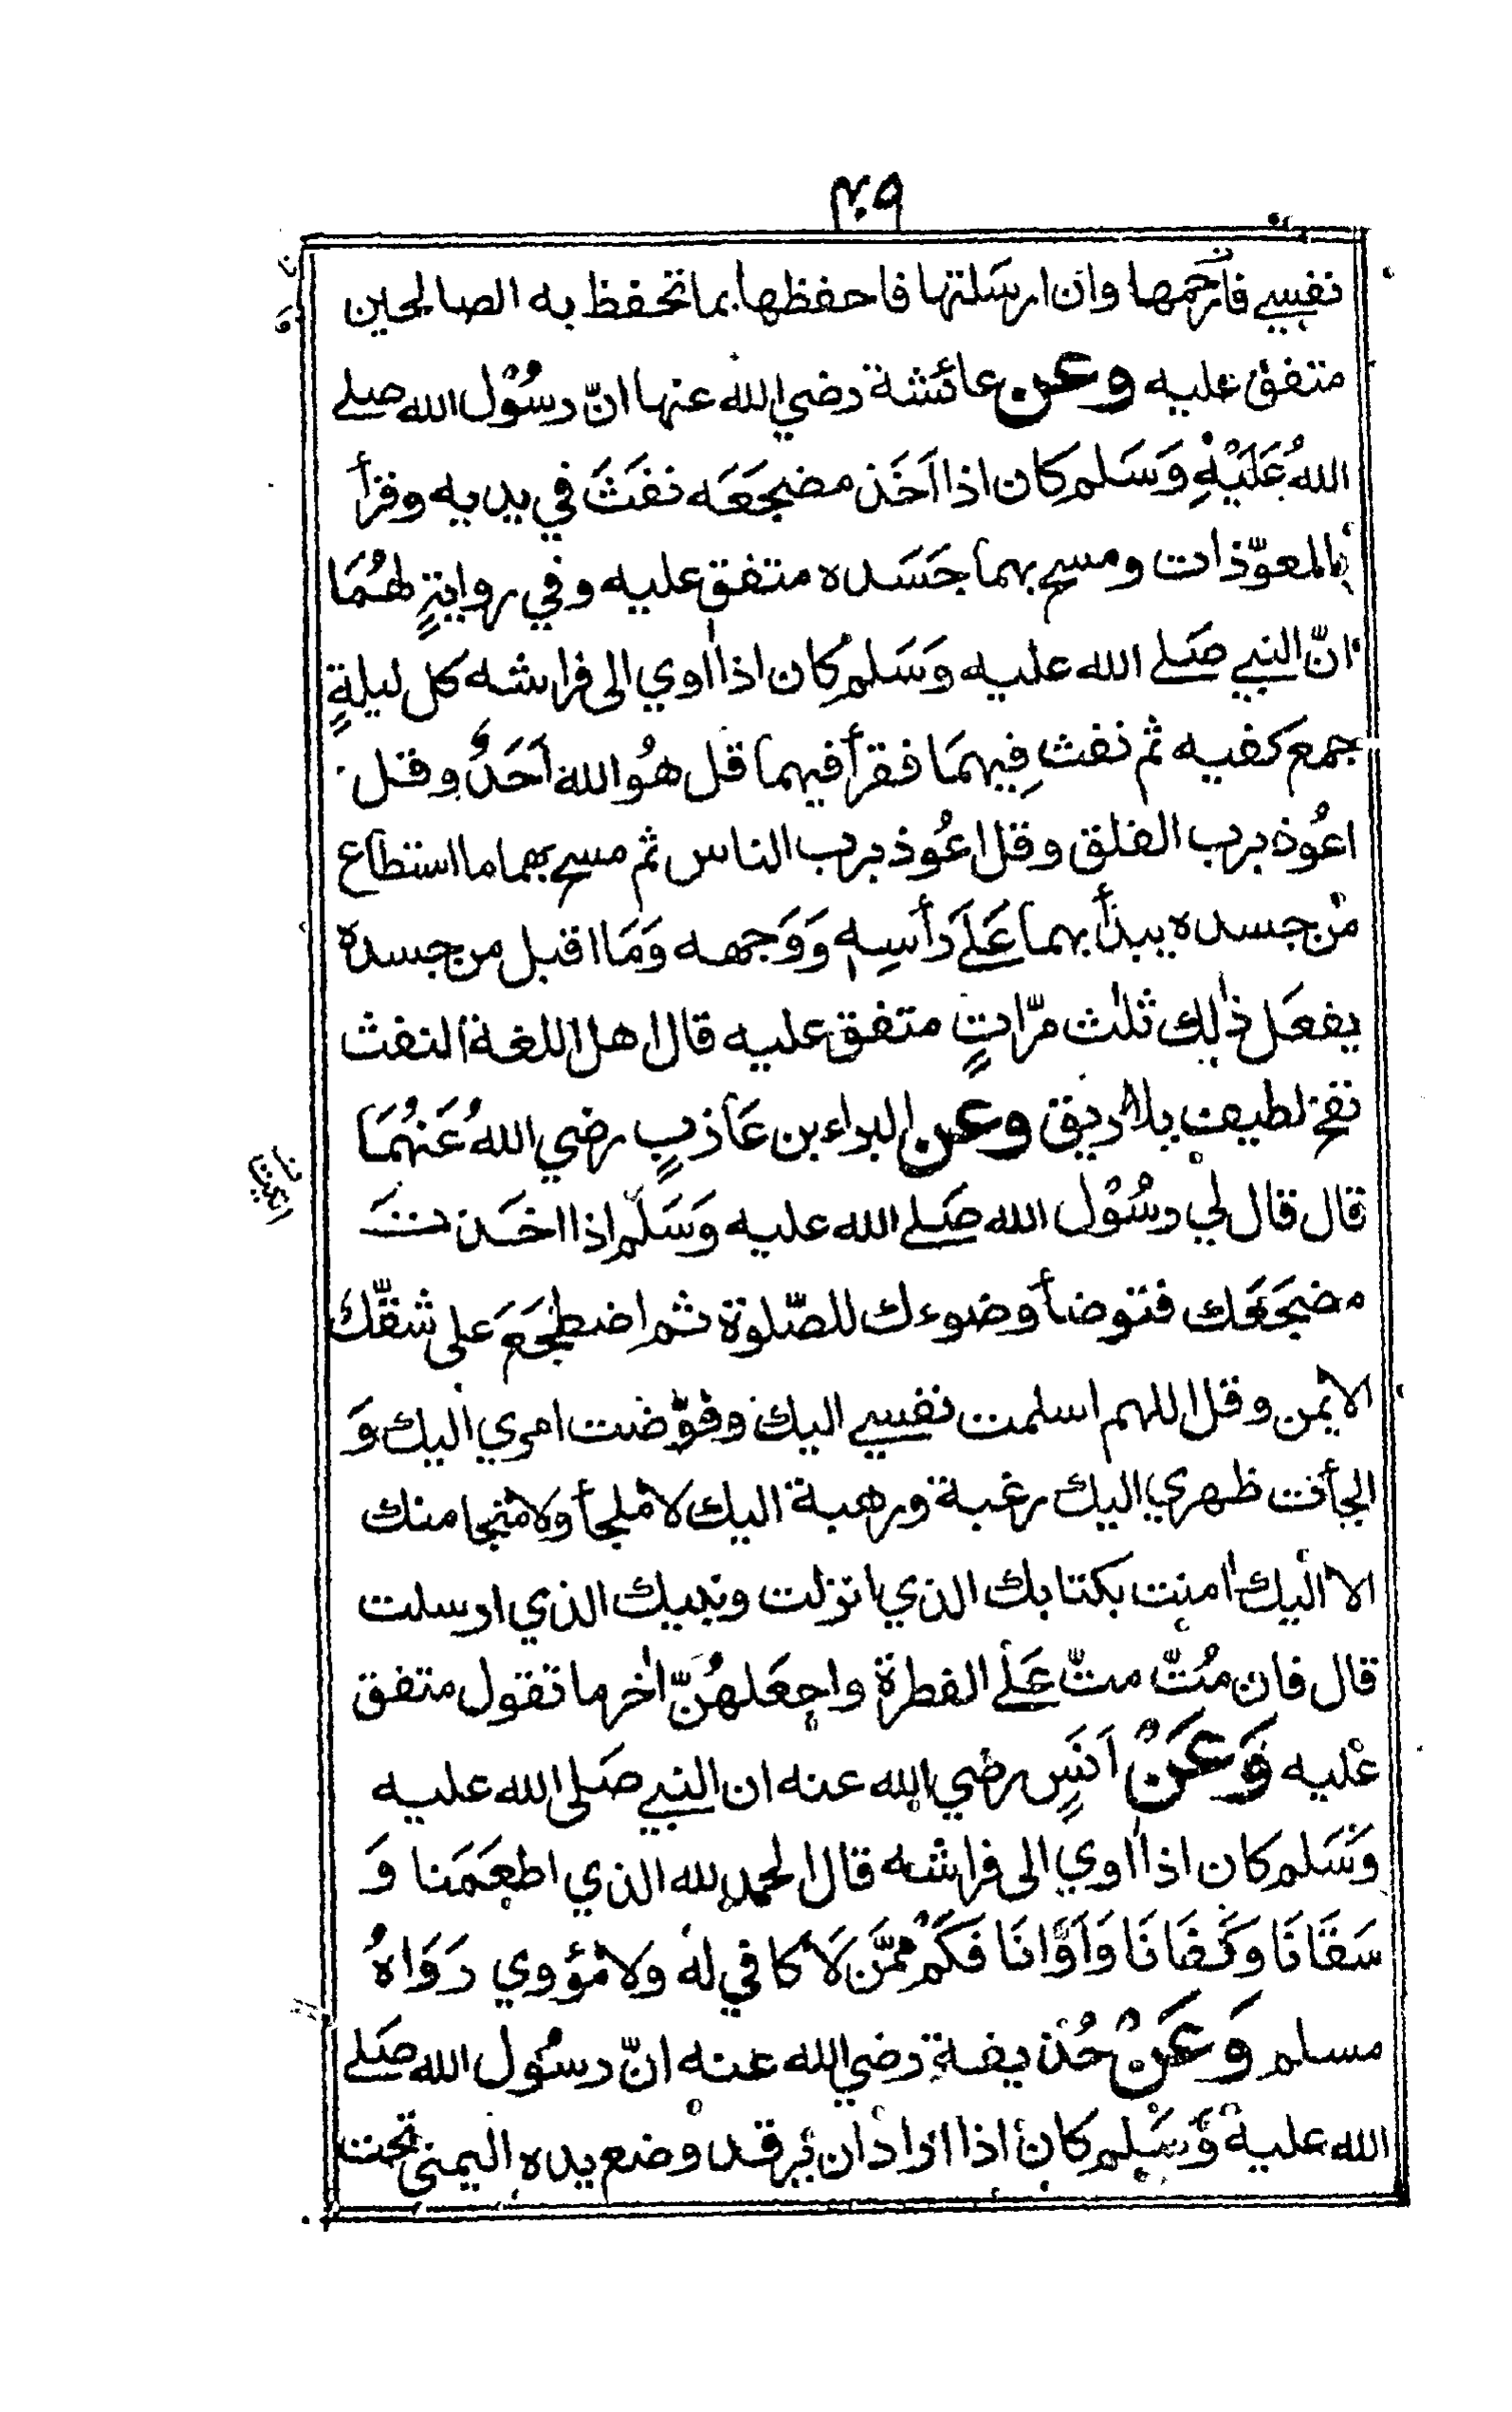 ٤٠٩
نفسي فارحمها وان ارسَلتها فاحفظها بما تحفظ به الصالحين
متفق عليه وعن عائشة رضي الله عنها انّ رسُوْل الله صلے
اللهُ عَلَيْهِ وَسَلم كان اذا اَخَذ مضجَعَه نفَثَ في يديه وقرأ
بالمعوّذات ومسح بهما جَسَده متفق عليه وفي روايةٍ لهُمَا
انّ النبي صَلے الله عليه وَسَلم كان اذا اٰوي الى فراشه كل ليلةٍ
جمع كفيه ثم نفث فِيهمَا فقرأ فيهما قل هُو الله اَحَدٌ وقل
اعُوذ برب الفلق وقل اعُوذ برب الناس ثم مسح بهما ما استطاع
من جسده يبدأ بهما عَلَے رَأسِه وَوَجهه وَمَا اقبل من جسده
يفعَل ذٰلك ثلٰث مرّاتٍ متفق عليه قال اهل اللغة النفث
نفخ لطيف بلا ريق وعن البراء بن عَازبٍ رضي اللهُ عَنهُمَا
قال قال لي رسُوْل الله صَلے الله عليه وَسَلّم اذا اخَذت
مضجَعَك فتوضأ وضوءك للصّلوة ثم اضطجَعَ على شقّك
الايمن وقل اللهم اسلمت نفسي اليك وفوّضت امري اليك وَ
الجأت ظهري اليك رغبة ورهبة اليك لا ملجأ ولا منجا منك
الا اليك اٰمنت بكتابك الذي انزلت ونبيك الذي ارسلت
قال فان مُتّ متّ عَلے الفطرة واجعَلهُنّ اٰخر ما تقول متفق
عليه وَعَنْ اَنَسٍ رضي الله عنه ان النبي صَلى الله عليه
وَسَلم كان اذا اٰوي الى فراشه قال الحمد لله الذي اطعَمَنا وَ
سَقَانَا وَكَفَانَا وَاٰوَانَا فَكَمْ ممَّن لَا كافي له ولا مؤوي رَوَاهُ
مسلم وَعَنْ حُذيفة رضي الله عنه انّ رسُول الله صَلے
الله عليه وَسَلم كان اذا اراد ان يرقد وضع يده اليمنى تحت